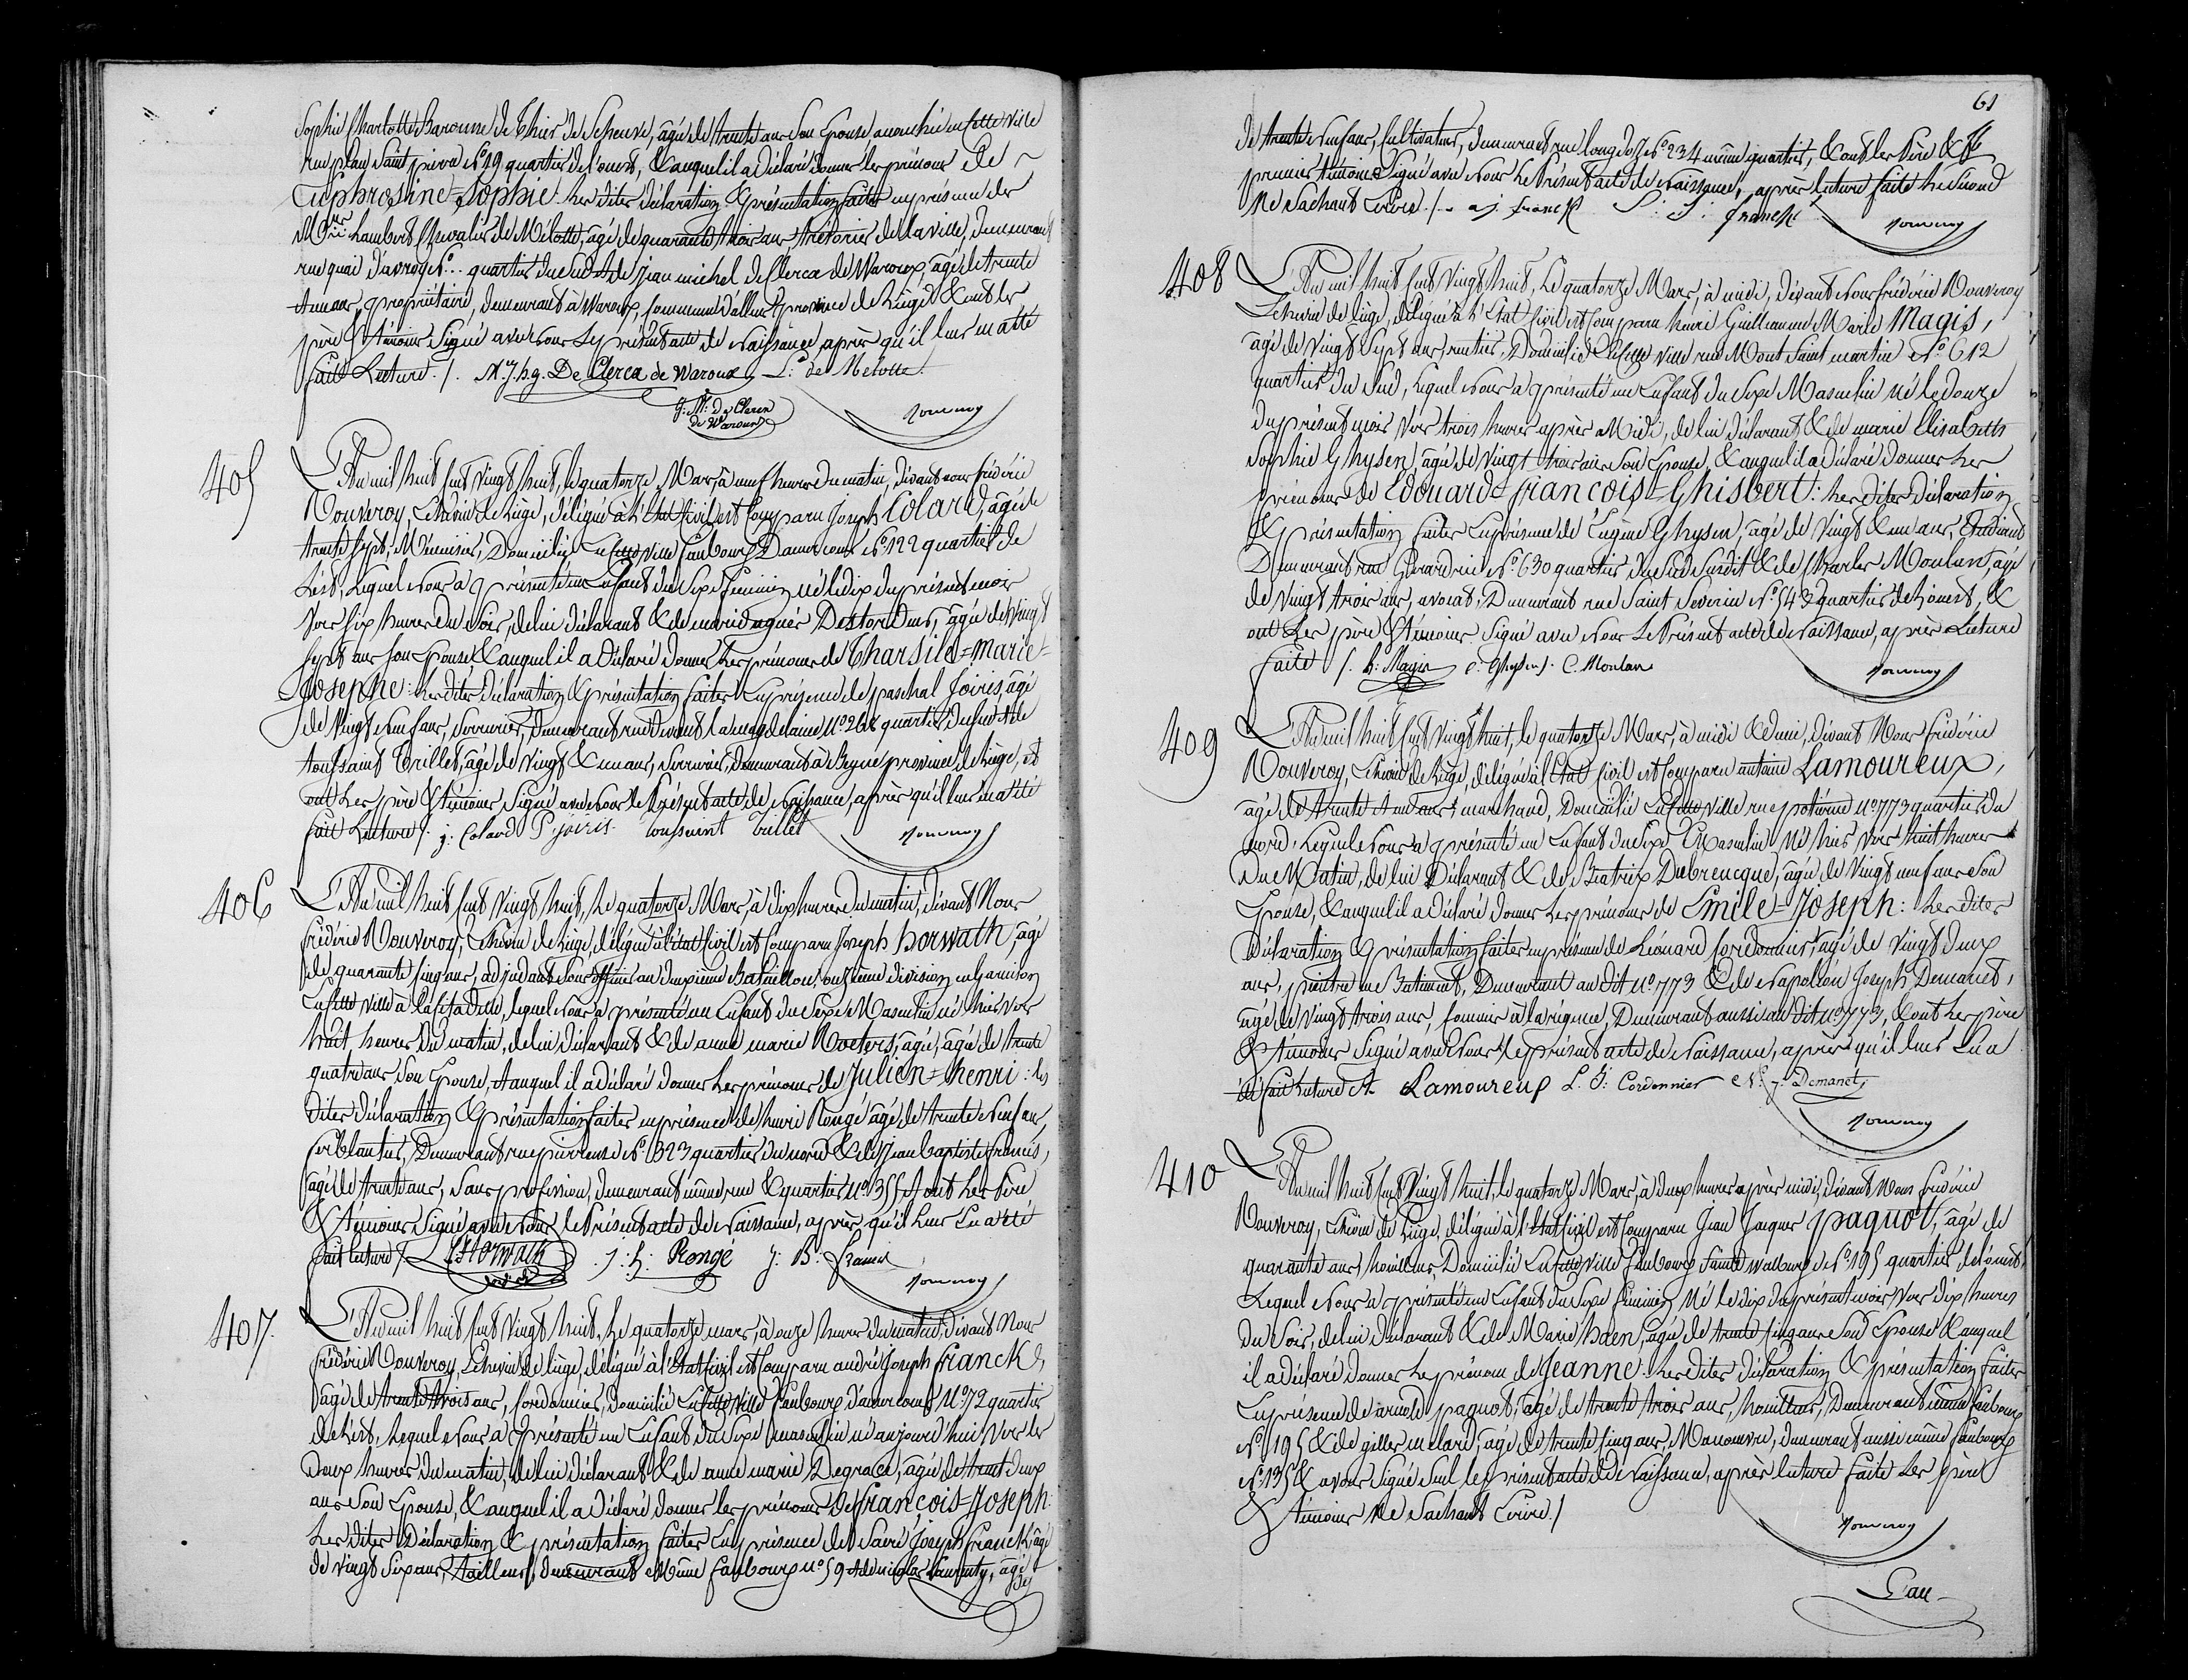 Sophie Charlotte Baronne de Thier de Scheuvre, âgée de trente ans son Epouse accouchée en cette Ville
rue place Saint pierre N.° 19 quartier de l'ouest, & auquel il a déclaré donner les prénoms de
Euphrosine=Sophie. Les dites déclaration & présentation faites en présence de
Lambert Chevalier de Mélotte, âgé de quarante trois ans trésorier de la ville, demeurant
rue quai d'avroy N.° ... quartier du Sud & de Jean michel de Clercx de Waroux, âgé de trente
& un ans, propriétaire, demeurant à Waroux, Commune d'alleur province de Liège, & ont les
père & témoins Signé avec Nous le présent acte de Naissance, après qu'il leur en a été
fait Lecture. /. M. J. h. g. De Clercx de Waroux L: de Melotte.
J: M: De Clercx
de Waroux
Rouveroy
405
L'An mil huit Cent Vingt huit, le quatorze Mars, à neuf heures du matin, devant nous frédéric
Rouveroy, Echevin de Liège, délégué à l'Etat Civil est Comparu Joseph Colard, âgé de
trente Sept, Menuisier, Domicilié En Cette Ville faubourg D'amercœur N.° 122 quartier de
L'est, Lequel Nous a présenté un Enfant du Sexe féminin né le dix du présent mois
Vers Six heures du Soir, de lui déclarant & de marie agnès Destordeur, âgée de Vingt
Sept ans Son Epouse, & auquel il a déclaré donner Les prénoms de Tharsile=Marie=
Josephe: Les dites déclaration & présentation faites En présence de paschal Joiris, âgé
de Vingt Neuf ans, Serrurier, Demeurant rue devant la magdelaine N.° 268 quartier du Sud & de
toussaint Trillet, âgé de Vingt & un ans, Serrurier, Demeurant à Beyne province de Liège, et
ont Les père & témoins Signé avec Nous le Présent acte de Naissance, après qu'il leur en a été
fait Lecture /. j: Colard P. joiris. toussaint trillet
Rouveroy
406
L'An mil huit Cent Vingt huit, Le quatorze Mars, à dix heures du matin, devant Nous
frédéric Rouveroy, Echevin de Liège, délégué à l'état Civil est Comparu Joseph horwath, âgé
de quarante Cinq ans, adjudant Sous officier au deuxième Bataillon, onzième division en Garnison
En Cette Ville à la Citadelle, lequel Nous a présenté un Enfant du Sexe Masculin né hier Vers
huit heures du matin, de lui déclarant & de anne marie Wouters, âgé, âgée de trente
quatre ans Son Epouse, & auquel il a déclaré donner Les prénoms de Julien=henri: les
dites déclaration & présentation faites en présence de henri Rongé âgé de trente Neuf ans,
ferblantier, Demeurant rue pierreuse N.° 1323 quartier du nord & de Jean baptiste francis,
âgé de trente ans, Sans profession, demeurant même rue & quartier N.° 355 & ont Les Père
& témoins Signé avec Nous le Présent acte de Naissance, après qu'il Leur En a été
fait lecture /. Horwath J: h: Rongé J: B: Francis
Rouveroy
407.
L'An mil huit Cent Vingt huit, Le quatorze mars, à onze heures du matin, devant Nous
frédéric Rouveroy, Echevin de Liège, délégué à l'état Civil est Comparu andré Joseph franck,
âgé de trente trois ans, Cordonnier, domicilié En Cette Ville faubourg d'amercœur N.° 72 quartier
de L'est, Lequel Nous a présenté un Enfant du Sexe masculin né aujourd'hui Vers les
Deux heures du matin, de lui déclarant & de anne marie Degrace, âgée de trente deux
ans Son Epouse, & auquel il a déclaré donner les prénoms de françois=Joseph:
Les dites Déclaration & présentation faites En présence de Servé Joseph franck, âgé
de Vingt Six ans, tailleur, demeurant même faubourg N.° 59 & de nicolas Laurenty, âgé
De
61
de trente Neuf ans, Cultivateur, demeurant rue longdoz N.° 234 même quartier, & ont les Père & le
premier témoin Signé avec Nous Le Présent acte de Naissance, après lecture faite le Second
Ne Sachant Ecrire. /. a j. franck S: J: franck
Rouveroy
408
L'An mil huit Cent Vingt huit, Le quatorze Mars, à midi, devant Nous frédéric Rouveroy
Echevin de Liège, délégué à l'Etat Civil est Comparu henri Guillaume Marie Magis,
âgé de Vingt Sept ans, rentier, Domicilié En Cette Ville rue Mont Saint martin N.° 612
quartier du Sud, Lequel Nous a présenté un Enfant du Sexe Masculin né le douze
du présent mois Vers trois heures après Midi, de lui déclarant & de marie Elisabeth
Sophie Ghysen, âgée de Vingt trois ans Son Epouse, & auquel il a déclaré donner Les
prénoms de Edouard=françois=Ghisbert: Les dites déclaration
& présentation faites En présence de Eugène Ghysen, âgé de Vingt & un ans, Etudiant
Demeurant rue Gérardrie N.° 630 quartier du Sud Susdit & de Charles Moulan, âgé
de Vingt trois ans, avocat, Demeurant rue Saint Severin N.° 543 quartier de L'ouest, &
ont Les père & témoins Signé avec Nous Le Présent acte de Naissance, après Lecture
faite /. h: Magis E. Ghysen /. C. Moulan
Rouveroy
409
L'An mil huit Cent Vingt huit, le quatorze Mars, à midi & demi, devant Nous frédéric
Rouveroy, Echevin de Liège, délégué à l'Etat Civil est Comparu antoine Lamoureux,
âgé de trente & un ans, marchand, Domicilié En Cette Ville rue potiérue N.° 773 quartier du
nord, Lequel Nous a présenté un Enfant du Sexe Masculin Né hier Vers huit heures
Du Matin, de lui Déclarant & de Béatrix Dubrencque, âgée de Vingt neuf ans Son
Epouse, & auquel il a Déclaré donner Les prénoms de Emile=Joseph: Les dites
Déclaration & présentation faites en présence de Léonard Cordonnier, âgé de Vingt deux
ans, peintre en Batiment, Demeurant au dit N.° 773 & de Napoléon Joseph Demanet,
âgé de Vingt trois ans, Commis à la régence, Demeurant aussi au dit N.° 773, & ont Les père
& témoins Signé avec Nous Le présent acte de Naissance, après qu'il leur En a
été fait Lecture /. A. Lamoureux L. J: Cordonnier N: J. Demanet
Rouveroy
410
L'An mil huit Cent Vingt huit, le quatorze Mars, à deux heures après midi, devant Nous frédéric
Rouveroy, Echevin de Liège, délégué à l'Etat Civil est Comparu Jean Jacques paquot, âgé de
quarante ans, houilleur, Domicilié En Cette Ville faubourg Sainte Walburge N.° 195 quartier de L'ouest,
Lequel Nous a présenté un Enfant du Sexe féminin Né le dix du présent mois Vers dix heures
du Soir, de lui déclarant & de Marie haen, âgée de trente Cinq ans Son Epouse & auquel
il a déclaré donner Le prénom de Jeanne: Les dites déclaration & présentation faites
En présence de arnold paquot, âgé de trente trois ans, houilleur, Demeurant même faubourg
N.° 195 & de gilles melard, âgé de trente Cinq ans, Manœuvre, demeurant aussi même faubourg
N.° 135 & avons Signé Seul le présent acte de Naissance, après lecture faite Les père
& témoins Ne Sachant Ecrire. /
Rouveroy
L'an